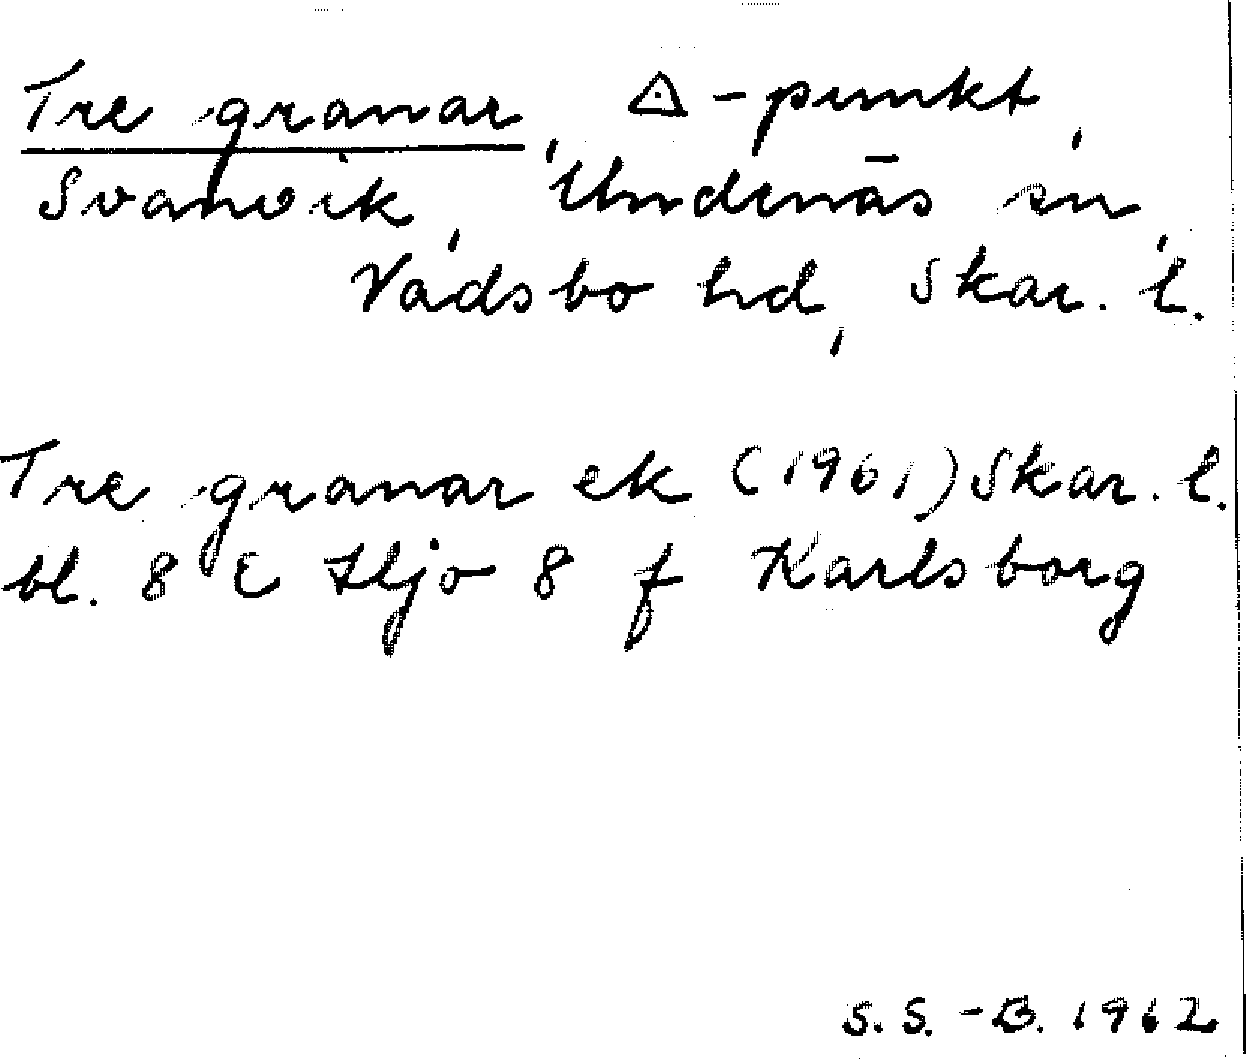 Tre granar, △-punkt,
Svanvik, Undenäs sn,
Vadsbo hd, Skar. l.
Tre granar ek (1961) Skar. l.
bl. 8 E Hjo 8 f Karlsborg
S. S.-B. 1962